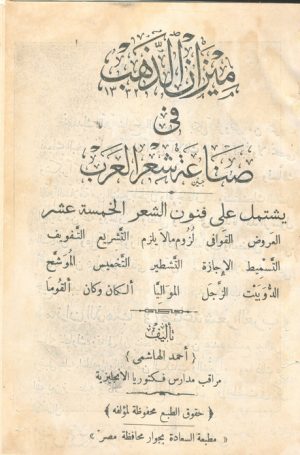 ميزان الذهب
١٣٣٢
فى
صناعة شعر العرب
يشتمل على فنون الشعر الخمسة عشر
العروض القوافى لزوم مالا يلزم التشريع التفويف
التسميط الإجازة التشطير التخميس الموشح
الدوبيت الزجل المواليا ألكان وكان ألقوما
تأليف
﴿ أحمد الهاشمى ﴾
مراقب مدارس فكتوريا الانجليزية
﴿ حقوق الطبع محفوظة لمؤلفه ﴾
« مطبعة السعادة بجوار محافظة مصر »